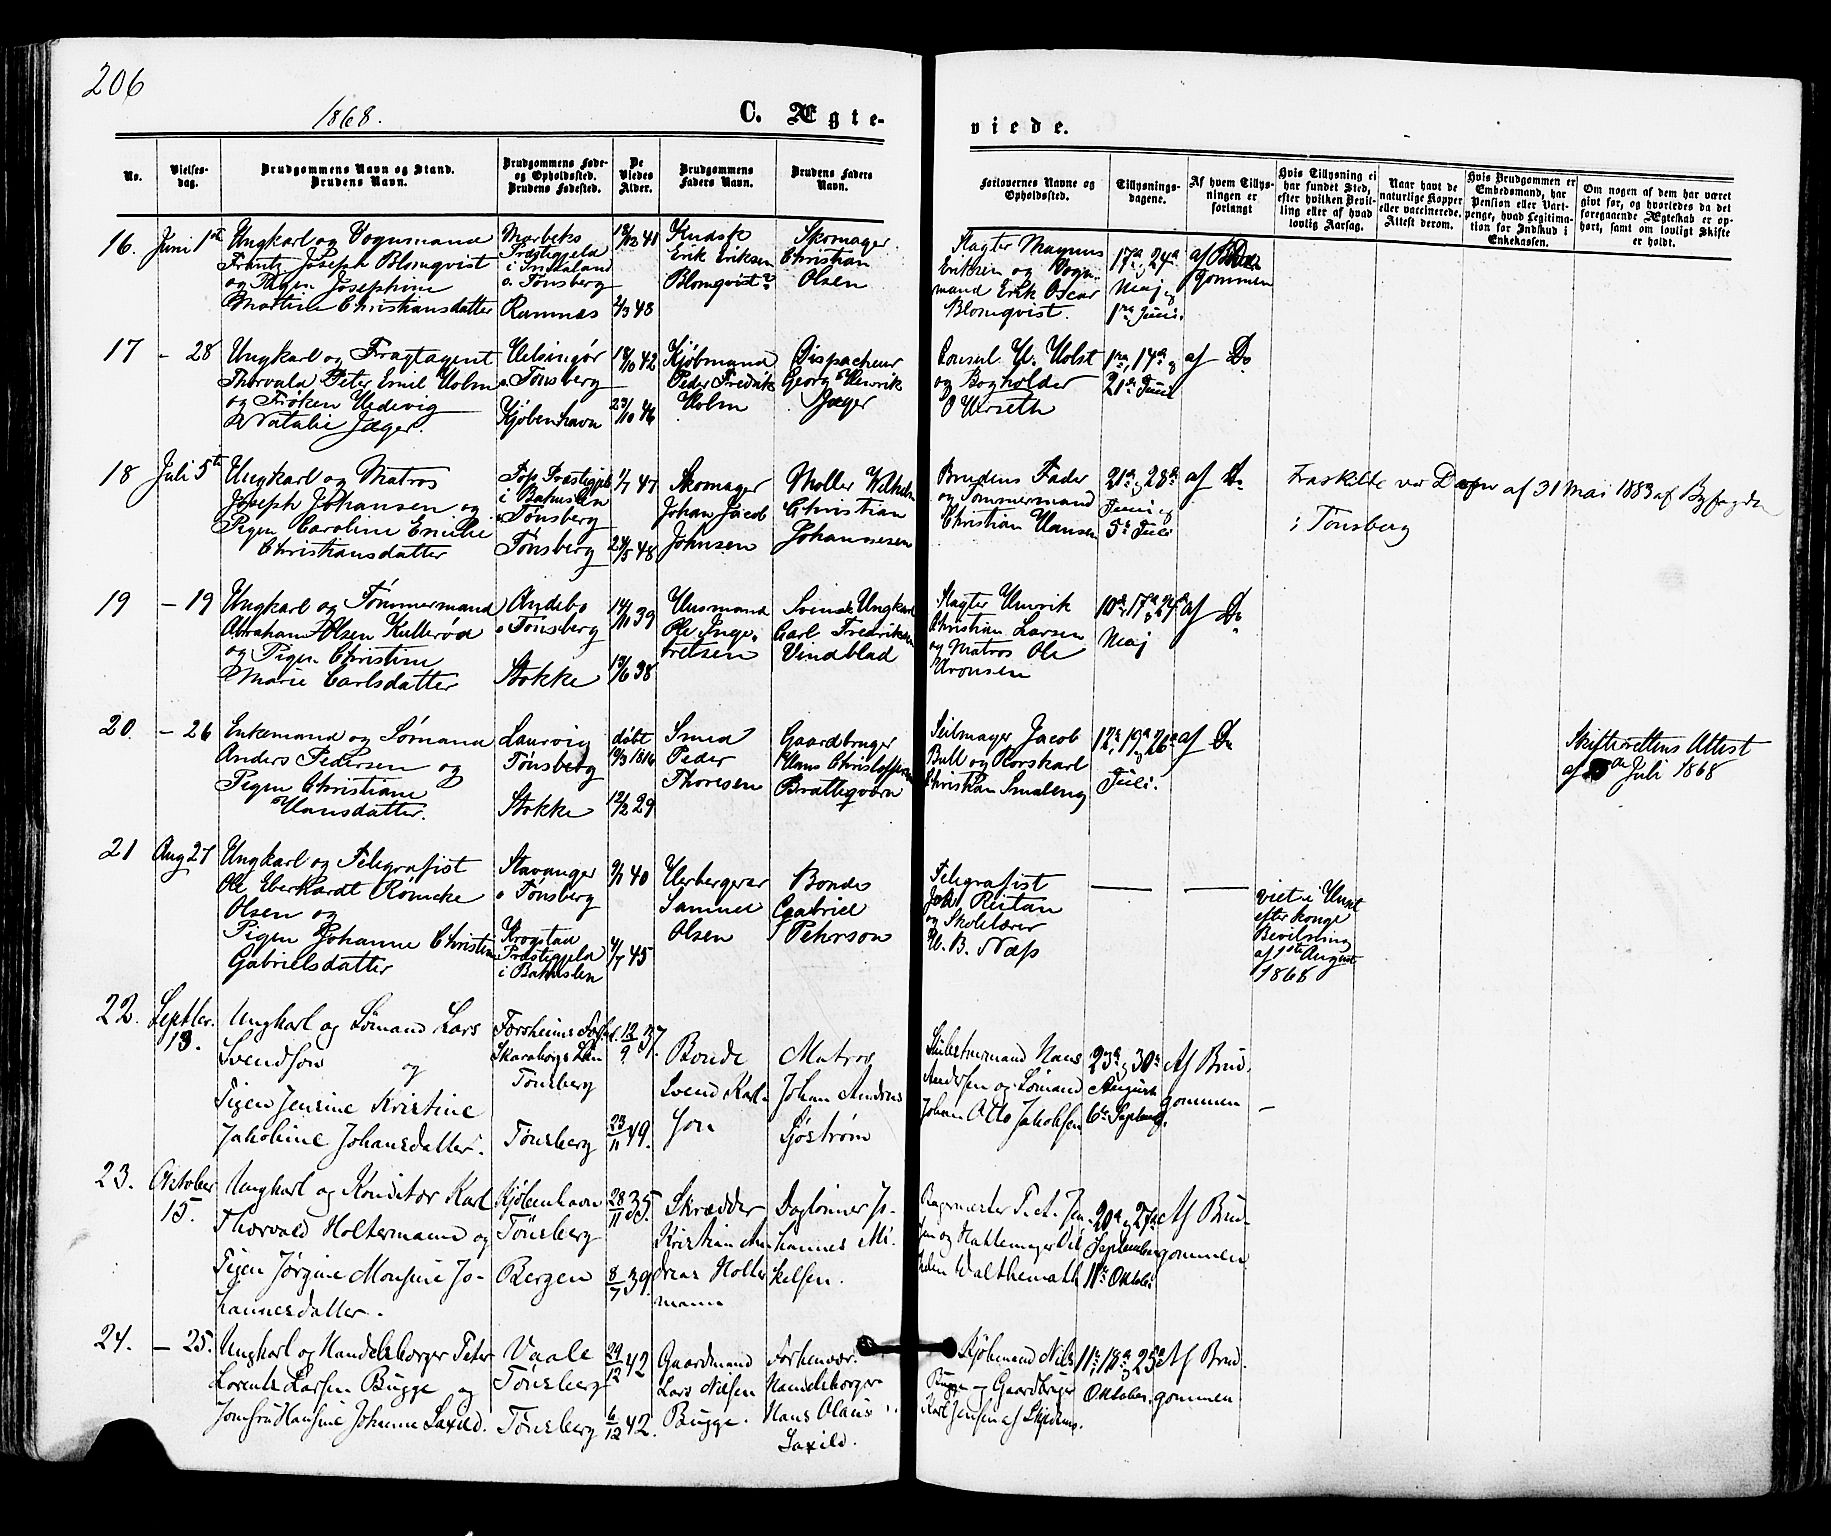 206
1868.
C. Ægte-
viede.
No.
Vielses-
dag.
Brudgommens Navn og Stand.
Brudens Navn.
Brudgommens Føde-
og Opholdssted.
Brudens Fødested.
De
Viedes
Alder.
Brudgommens
Faders Navn.
Brudens Faders
Navn.
Forlovernes Navne og
Opholdssted.
Tillysnings-
dagene.
Af hvem Tillys-
ningen er
forlangt
Hvis Tillysning ei
har fundet Sted,
efter hvilken Bevil-
ling eller af hvad
lovlig Aarsag.
Naar havt de
naturlige Kopper
eller vaccinerede.
Attest derom.
Hvis Brudgommen er
Embedsmand, har
Pension eller Vart-
penge, hvad Legitima-
tion for Indskud i
Enkekassen.
Om nogen af dem har været
gift før, og hvorledes da det
foregaaende Ægteskab er op-
hørt, samt om lovligt Skifte
er holdt.
16. Juni 1ste
Ungkarl og Vognmand
Frantz Joseph Blomqvist
og Pigen Josephine
Martine Christiansdatter
Præstegjeld
o. Tønsberg
Ramnæs
18/12 41
2/3 48
Erik Eriksen
Blomqvist
Skomager
Christian
Olsen
Slagter Magnus
Eriksen og Vogn-
mand Erik Oscar
Blomqvist.
17de, 24de
Maj og
1ste Juni.
af Brud-
gommen
17 – 28
Ungkarl og Fragtagent
Thorvald Peter Emil Holm
og Frøken Hedevig
Natalie Jæger.
Helsingør
o Tønsberg
Kjøbenhavn
18/10 42
23/10 46
Kjøbmand
Peder Fredrik
Holm
Dispacheur
Georg Henrik
Jæger
Consul H. Holst
og Bogholder
O Herseth
1ste, 14de og
21de Juni
af Do
18 Juli 5te
Ungkarl og Matros
Joseph Johansen og
Pigen Caroline Emilie
Christiansdatter
Foss Præstegjeld
i Bahuslen
o Tønsberg
Tønsberg
1/7 47
24/5 48
Skomager
Johan Jacob
Johnsen
Møller Wilhelm
Christian
Johannesen
Brudens Fader
og Tømmermand
Christian Hansen
21de, 28de
Juni og
5te Juli
af Do
Fraskilte ved Dom af 31 Mai 1883 af Byfogden
i Tønsberg
19 – 19
Ungkarl og Tømmermand
Abraham Olsen Kullerød
og Pigen Christine
Marie Carlsdatter
Andebo
o Tønsberg
Stokke
14/10 39
19/6 38
Husmand
Ole Inge-
bretsen
Svensk Ungkarl
Carl Fredriksen
Vindblad
Slagter Henrik
Christian Larsen
og Matros Ole
Aronsen
10de, 17de, 24de
Maj
af Do
20 – 26
Enkemand og Sømand
Anders Pedersen og
Pigen Christiane
Hansdatter.
Laurvig
Tønsberg
Stokke
døbt
10/3 1816
12/2 29
Smed
Peder
Thoresen
Gaardbruger
Hans Christoffersen
Brattegvarn
Seilmager Jacob
Bull og Horskarl
Christian Smaleng
12te, 19de, 26de
Juli.
af Do
Skifterettens Attest
af Juli 1868
21 Aug 27
Ungkarl og Telegrafist
Ole Eberhardt Römcke
Olsen og
Pigen Johanne Christine
Gabrielsdatter
Stavanger
o Tønsberg
Krogstad
Præstegjeld
i Bahuslen
9/1 40
4/7 45
Herbergerer
Samuel
Olsen
Bonde
Gabriel
Pehrson
Telegrafist
Joh Reitan
og Skolelærer
H. B. Næss
viet i Huset
efter konge
Bevilling
af 1ste August
1868
22. Septbr.
13.
Ungkarl og Sømand Lars
Svendson
og
Pigen Jensine Kristine
Jakobine Johansdatter.
Forsheims
Skaraborgs Län
Tønsberg
Tønsberg
12/9 37.
23/11 49.
Bonde
Svend Karl-
son
Matros
Johan Andreas
Sjöström
Styrmand Hans
Andersen og Sømand
Johan Otto Jakobsen
23de, 30te
August
6te Septemb.
Af Brud-
gommen
23. Oktober
15.
Ungkarl og Konditor Karl
Thorvald Holtermann og
Pigen Jørgine Monsine Jo-
hannesdatter.
Kjöbenhavn
Tønsberg
Bergen
28/11 35.
8/7 39.
Skrædder
Kristian An
dreas Holter
mann
Daglønner Jo-
hannes Mi-
kelsen.
Bagermester P. A. Jen-
sen og Hattemager Vil-
helm Walthemath
20de, 27de
September
11te Oktober
Af Brud-
gommen
24. – 25.
Ungkarl og Handelsborger Peter
Lorents Larsen Bugge og
Jomfru Hansine Johanne Saxild.
Vaale
Tønsberg
Tønsberg
29/12 42
6/12 42.
Gaardmand
Lars Nilsen
Bugge.
Forhenvær.
Handelsborger
Hans Olaus
Saxild.
Kjöbmand Nils
Bugge og Gaardbruger
Karl Jensen af
11te, 18de, 25de
Oktober.
Af Brud-
gommen